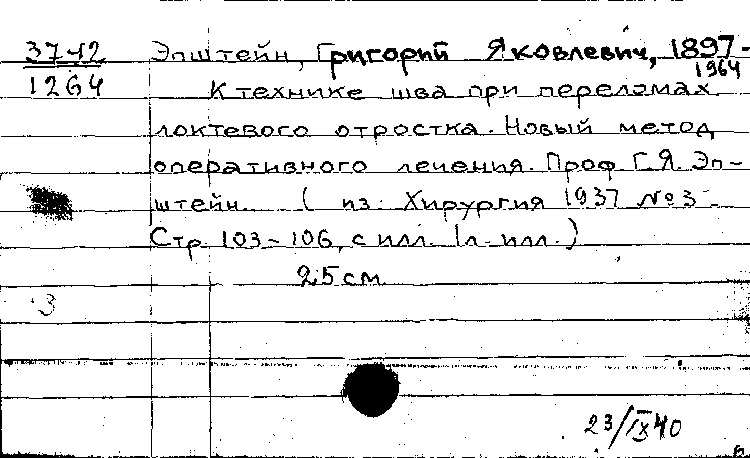 37-12 Эпштейн, Григорий Яковлевич, 1897-
1964
1264 К технике шва при переломах
локтевого отростка. Новый метод
оперативного лечения. Проф. Г. Я. Эп-
штейн. (из: Хирургия 1937 № 3
Стр. 103-106, с илл. 1 л. илл.)
25 см.
3
23/IX 40